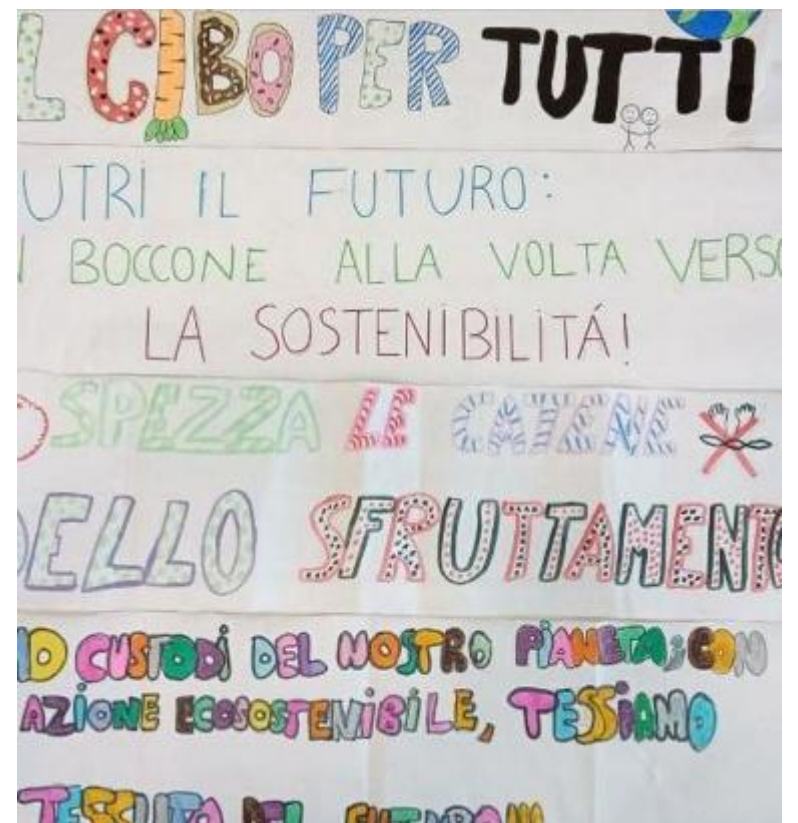 L CIBO PER TUTTI
UTRI IL FUTURO:
BOCCONE ALLA VOLTA VERSO
LA SOSTENIBILITÁ!
SPEZZA LE CATENE
DELLO SFRUTTAMENTO
CUSTODI DEL NOSTRO PIANETA: CON
AZIONE ECOSOSTENIBILE, TESSIAMO
TESSUTO DEL FUTURO!!!